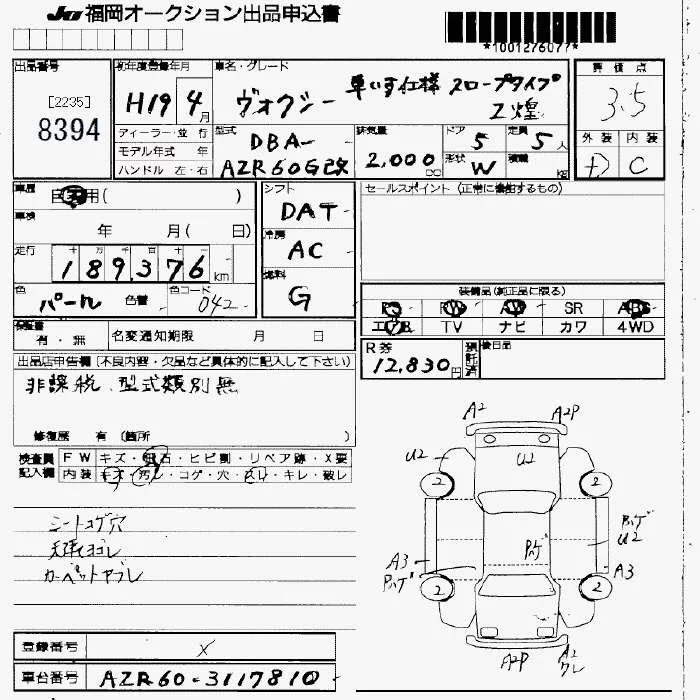 JU 福岡オークション出品申込書
*1001276077*
出品番号
[2235]
8394
初年度登録年月
H19年4月
ディーラー・並行
モデル年式 年
ハンドル 左・右
車名・グレード
ヴォクシー 車いす仕様 スロープタイプ
Z煌
型式
DBA-
AZR60G改
排気量
2,000cc
ドア 5
定員 5人
形状 W
積載 kg
評価点
3.5
外装 内装
D C
車歴
自家用( )
車検
年 月( 日)
走行
十 万 千 百 十 一
189,376 km
色
パール 色替
色コード
042
シフト
DAT
冷房
AC
燃料
G
セールスポイント (正常に機能するもの)
装備品(純正品に限る)
PS PW AW SR ABS
エアB TV ナビ カワ 4WD
保証書
有・無
名変通知期限 月 日
R券
12,830円
預託済
後日品
出品店申告欄 (不良内容・欠品など具体的に記入して下さい)
非課税、型式類別無
修復歴 有 (箇所 )
検査員記入欄
FW キズ・飛石・ヒビ割・リペア跡・X要
内装 キズ・汚レ・コゲ・穴・スレ・キレ・破レ
シートコゲ穴
天張ヨゴレ
カーペットヤブレ
A2 A2P
U2 U2
2 2
Pハゲ
U2
Pハゲ
A3
Pハゲ
A3
2 2
A2P A2
ワレ
登録番号 ×
車台番号 AZR60-3117810